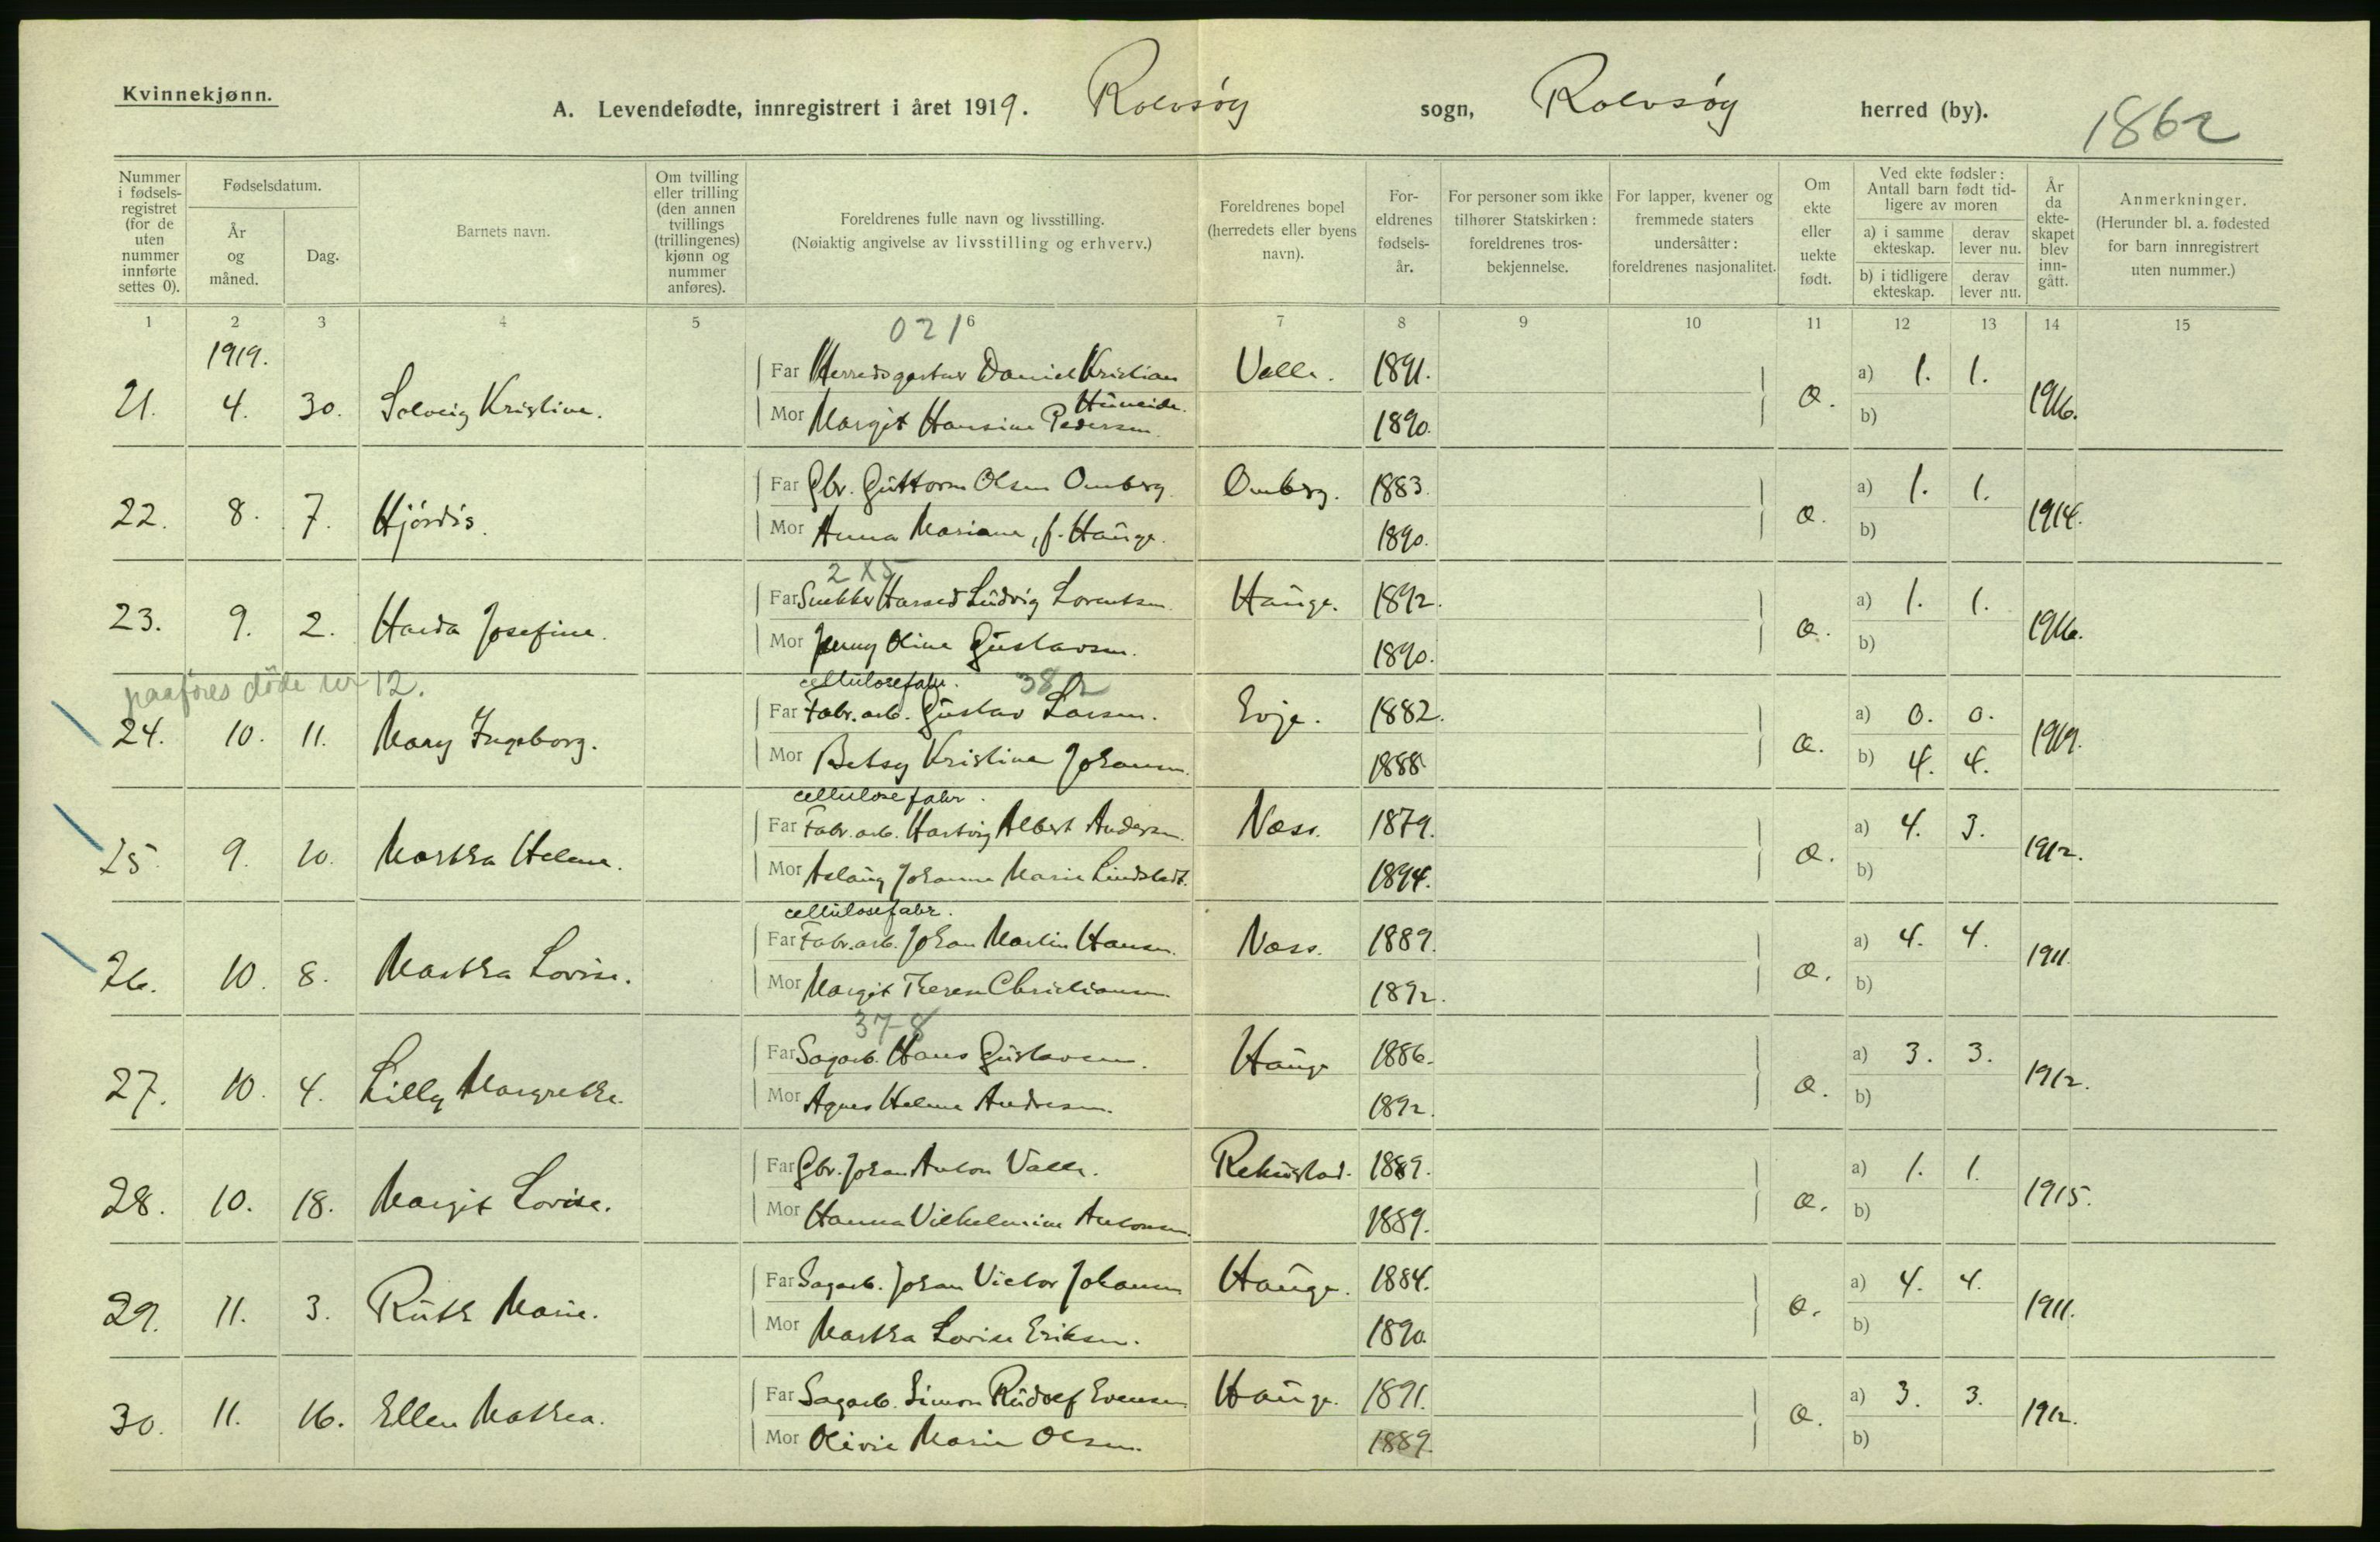 Kvinnekjønn.
A. Levendefødte, innregistrert i året 1919. Rolvsøy sogn, Rolvsøy herred (by).
1862
Nummer i fødsels-registret (for de uten nummer innførte settes 0).
Fødselsdatum.
År og måned.
Dag.
Barnets navn.
Om tvilling eller trilling (den annen tvillings (trillingenes) kjønn og nummer anføres).
Foreldrenes fulle navn og livsstilling.
(Nøiaktig angivelse av livsstilling og erhverv.)
Foreldrenes bopel (herredets eller byens navn).
For-eldrenes fødsels-år.
For personer som ikke tilhører Statskirken: foreldrenes tros-bekjennelse.
For lapper, kvener og fremmede staters undersåtter: foreldrenes nasjonalitet.
Om ekte eller uekte født.
Ved ekte fødsler: Antall barn født tid-ligere av moren
a) i samme ekteskap. derav lever nu.
b) i tidligere ekteskap. derav lever nu.
År da ekte-skapet blev inn-gått.
Anmerkninger.
(Herunder bl. a. fødested for barn innregistrert uten nummer.)
1 2 3 4 5 6 7 8 9 10 11 12 13 14 15
021
1919.
Far Herredsgartner Daniel Kristian Valle. 1891. a) 1. 1.
21. 4. 30. Solveig Kristine. æ. 1916.
Mor Margit Hansine Pedersen 1890. b)
Far Gbr. Guttorm Olsen Omberg Omberg. 1883. a) 1. 1.
22. 8. 7. Hjördis. æ. 1914.
Mor Anna Mariane, f. Hauge. 1890. b)
2 x 5
Far Snekker Harald Ludvig Lorentsen. Hauge. 1892. a) 1. 1.
23. 9. 2. Harda Josefine. æ. 1916.
Mor Jenny Oline Gustavsen. 1890. b)
paaføres døde nr 12.
cellulosefabr. 382
Far Fabr. arb. Gustav Larsen. Evje. 1882. a) 0. 0.
24. 10. 11. Mary Ingeborg. æ. 1919.
Mor Betsy Kristine Johansen. 1888 b) 4. 4.
cellulosefabr.
Far Fabr. arb. Hartvig Albert Andersen. Næss. 1879. a) 4. 3.
25. 9. 10. Martha Helene. æ. 1912.
Mor Aslaug Johanne Marie Lindstedt. 1894. b)
cellulosefabr.
Far Fabr. arb. Johan Martin Hansen. Næss. 1889. a) 4. 4.
26. 10. 8. Martha Lovise. æ. 1911.
Mor Margit Therese Christiansen. 1892. b)
37-8
Far Sagarb. Hans Gustavsen. Hauge 1886. a) 3. 3.
27. 10. 4. Lilly Margrethe. æ. 1912.
Mor Agnes Helene Andresen. 1892. b)
Far Gbr. Johan Anton Valle. Rekustad. 1889. a) 1. 1.
28. 10. 18. Margit Lovise. æ. 1915.
Mor Hanna Vilhelmine Antonsen. 1889. b)
Far Sagarb. Johan Victor Johansen Hauge. 1884. a) 4. 4.
29. 11. 3. Ruth Marie. æ. 1911.
Mor Martha Lovise Eriksen. 1890. b)
Far Sagarb. Simon Rudolf Evensen Hauge. 1891. a) 3. 3.
30. 11. 16. Ellen Mathea. æ. 1912.
Mor Olivie Marie Olsen. 1889. b)